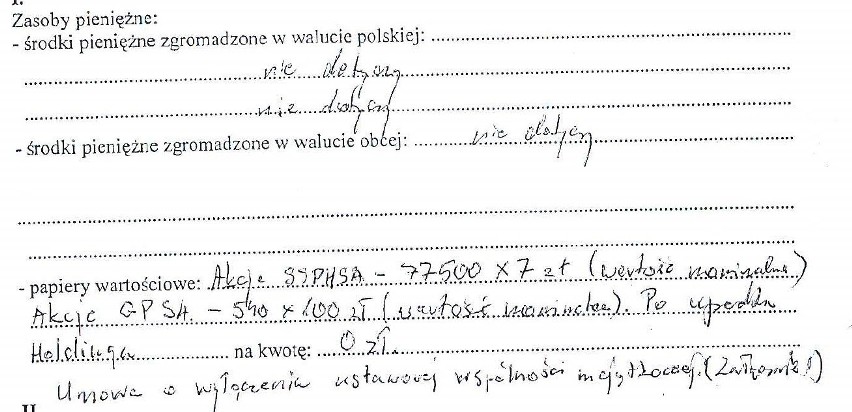 I.
Zasoby pieniężne:
- środki pieniężne zgromadzone w walucie polskiej:
nie dotyczy
nie dotyczy
- środki pieniężne zgromadzone w walucie obcej: nie dotyczy
- papiery wartościowe: Akcje SSPHSA - 77500 x 7 zł (wartość nominalna)
Akcje GPSA. - 540 x 100 zł (wartość nominalna). Po
Holdingu na kwotę: 0 zł.
Umowa o wyłączeniu ustawowej wspólności majątkowej. (Załącznik 1)
II.